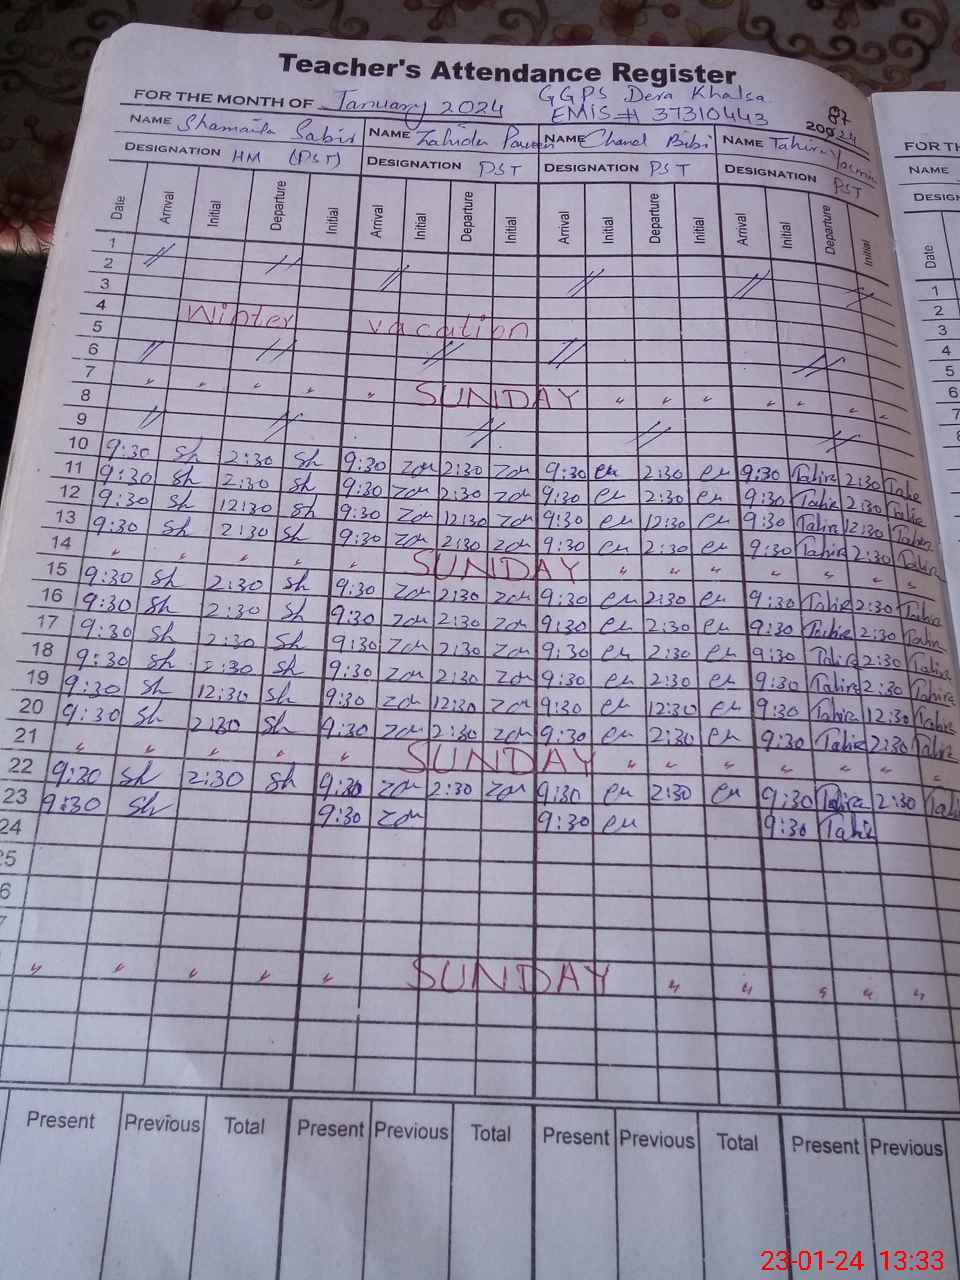 Teacher's Attendance Register
FOR THE MONTH OF January 2024 GGPS Dera Khalsa
EMIS # 37310443
87
2024
NAME Shamaila Sabir NAME Zahida Parveen NAME Chand Bibi NAME Tahira Yasmin
DESIGNATION HM (PST) DESIGNATION PST DESIGNATION PST DESIGNATION PST
Date Arrival Initial Departure Initial Arrival Initial Departure Initial Arrival Initial Departure Initial Arrival Initial Departure Initial
1
2 // // // // // //
3
4 Winter vacation
5
6 // // // // //
7 " " " " " SUNDAY " " " " " " "
8
9 // // // // //
10 9:30 Sh 2:30 Sh 9:30 2:30 9:30 2:30 9:30 Tahira 2:30 Tahi
11 9:30 Sh 2:30 Sh 9:30 2:30 9:30 2:30 9:30 Tahira 2:30 Tahira
12 9:30 Sh 12:30 Sh 9:30 12:30 9:30 12:30 9:30 Tahira 12:30 Tahira
13 9:30 Sh 2:30 Sh 9:30 2:30 9:30 2:30 9:30 Tahira 2:30 Tahira
14 " " " " " SUNDAY " " " " " "
15 9:30 Sh 2:30 Sh 9:30 2:30 9:30 2:30 9:30 Tahira 2:30 Tahira
16 9:30 Sh 2:30 Sh 9:30 2:30 9:30 2:30 9:30 Tahira 2:30 Tahira
17 9:30 Sh 2:30 Sh 9:30 2:30 9:30 2:30 9:30 Tahira 2:30 Tahira
18 9:30 Sh 2:30 Sh 9:30 2:30 9:30 2:30 9:30 Tahira 2:30 Tahira
19 9:30 Sh 12:30 Sh 9:30 12:30 9:30 12:30 9:30 Tahira 12:30 Tahira
20 9:30 Sh 2:30 Sh 9:30 2:30 9:30 2:30 9:30 Tahira 2:30 Tahira
21 " " " " " SUNDAY " " " " " "
22 9:30 Sh 2:30 Sh 9:30 2:30 9:30 2:30 9:30 Tahira 2:30 Tahi
23 9:30 Sh 9:30 9:30 9:30 Tahira
24
25
6
7
" " " " " SUNDAY " " " " "
Present Previous Total Present Previous Total Present Previous Total Present Previous
FOR TH
NAME
DESIGN
Date
1
2
3
4
5
6
7
8
23-01-24 13:33